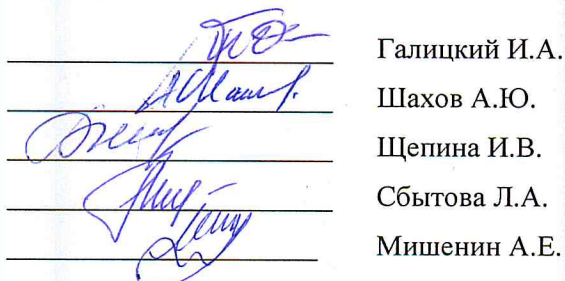 Галицкий И.А.
Шахов А.Ю.
Щепина И.В.
Сбытова Л.А.
Мишенин А.Е.